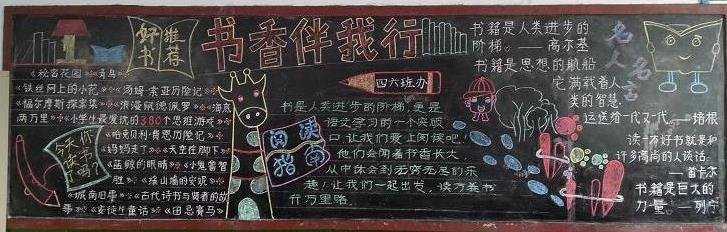 好书
推荐
书香伴我行
四六班办
《秘密花园》《青鸟》
《铁丝网上的小花》《汤姆·索亚历险记》
《福尔摩斯探案集》《海底
两万里》《小学生最爱玩的380个思维游戏》
《哈克贝利·费恩历险记》
《妈妈走了》《天空在脚下》
《蓝鲸的眼睛》《小鬼鲁智
胜》
《城南旧事》《古代诗书与贤者的故
事》《安徒生童话》《田忌赛马》
今天你
读书
了吗？
阅读
指南
书是人类进步的阶梯，更是
语文学习的一个突破
口，让我们爱上阅读吧！
他们会闻着书香长大，
从中体会到无穷无尽的乐
趣！让我们一起出发，读万卷书
行万里路。
名人名言
书籍是人类进步的
阶梯。——高尔基
书籍是思想的航船
它满载着人
类的智慧
这传给一代又一代。——培根
读一本好书就是和
许多高尚的人谈话。
——笛卡尔
书籍是巨大的
力量。——列宁